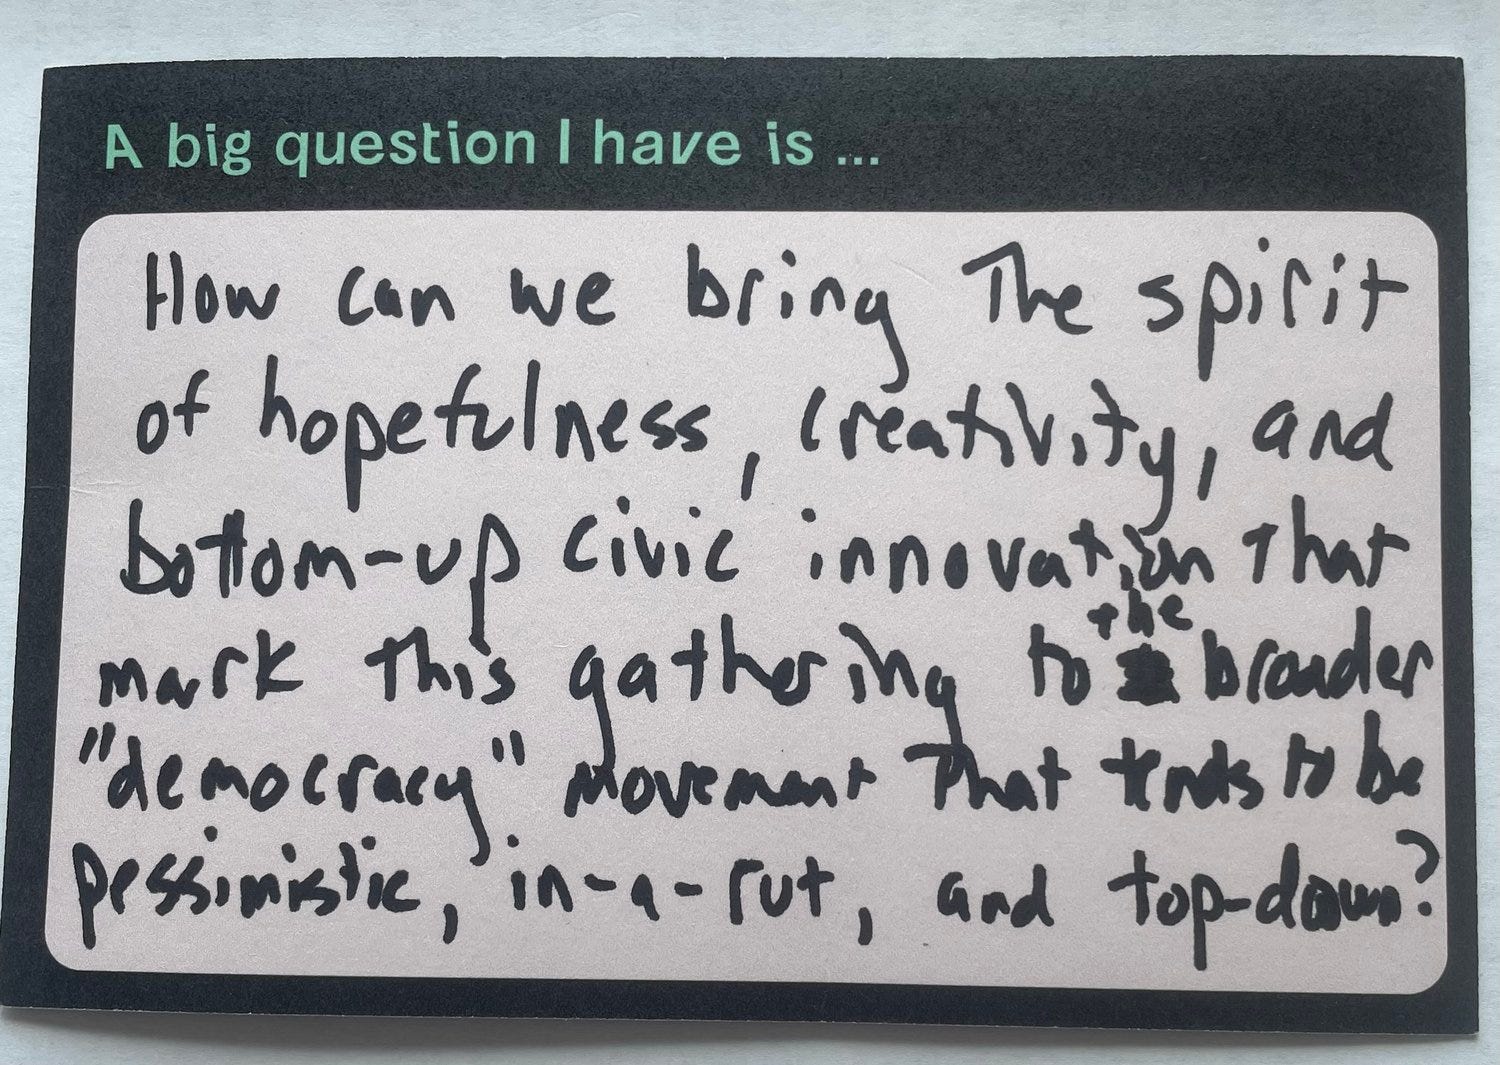 A big question I have is ...
How can we bring The spirit
of hopefulness, creativity, and
bottom-up civic innovation that
mark this gathering to the broader
"democracy" movement That tends to be
pessimistic, in-a-rut, and top-down?